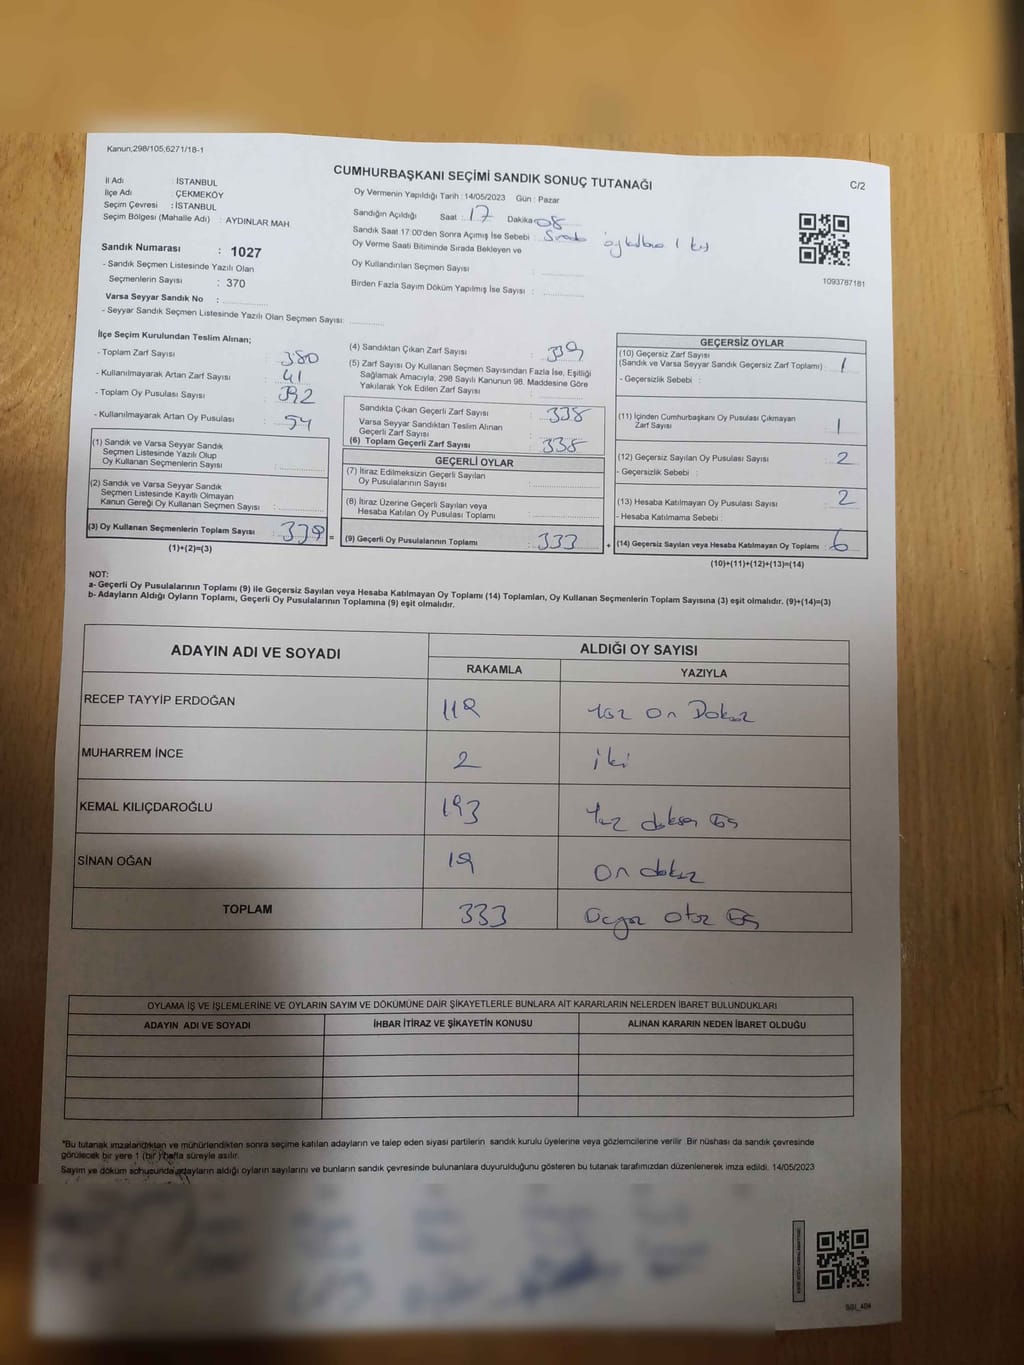 Kanun;298/105,6271/18-1
CUMHURBAŞKANI SEÇİMİ SANDIK SONUÇ TUTANAĞI
C/2
İl Adı : İSTANBUL
İlçe Adı : ÇEKMEKÖY
Seçim Çevresi : İSTANBUL
Seçim Bölgesi (Mahalle Adı) : AYDINLAR MAH.
Sandık Numarası : 1027
- Sandık Seçmen Listesinde Yazılı Olan
Seçmenlerin Sayısı : 370
Varsa Seyyar Sandık No :
- Seyyar Sandık Seçmen Listesinde Yazılı Olan Seçmen Sayısı:
Oy Vermenin Yapıldığı Tarih : 14/05/2023 Gün : Pazar
Sandığın Açıldığı Saat : 17 Dakika 08
Sandık Saat 17:00'den Sonra Açımış İse Sebebi : Sırada 1
Oy Verme Saati Bitiminde Sırada Bekleyen ve
Oy Kullandırılan Seçmen Sayısı :
Birden Fazla Sayım Döküm Yapılmış İse Sayısı :
1093787181
İlçe Seçim Kurulundan Teslim Alınan;
- Toplam Zarf Sayısı : 380
- Kullanılmayarak Artan Zarf Sayısı : 41
- Toplam Oy Pusulası Sayısı : 392
- Kullanılmayarak Artan Oy Pusulası : 54
(1) Sandık ve Varsa Seyyar Sandık
Seçmen Listesinde Yazılı Olup
Oy Kullanan Seçmenlerin Sayısı :
(2) Sandık ve Varsa Seyyar Sandık
Seçmen Listesinde Kayıtlı Olmayan
Kanun Gereği Oy Kullanan Seçmen Sayısı :
(3) Oy Kullanan Seçmenlerin Toplam Sayısı : 339 =
(1)+(2)=(3)
(4) Sandıktan Çıkan Zarf Sayısı : 339
(5) Zarf Sayısı Oy Kullanan Seçmen Sayısından Fazla İse, Eşitliği
Sağlamak Amacıyla, 298 Sayılı Kanunun 98. Maddesine Göre
Yakılarak Yok Edilen Zarf Sayısı :
Sandıkta Çıkan Geçerli Zarf Sayısı : 338
Varsa Seyyar Sandıktan Teslim Alınan
Geçerli Zarf Sayısı :
(6) Toplam Geçerli Zarf Sayısı : 338
GEÇERLİ OYLAR
(7) İtiraz Edilmeksizin Geçerli Sayılan
Oy Pusulalarının Sayısı :
(8) İtiraz Üzerine Geçerli Sayılan veya
Hesaba Katılan Oy Pusulası Toplamı :
(9) Geçerli Oy Pusulalarının Toplamı : 333 +
GEÇERSİZ OYLAR
(10) Geçersiz Zarf Sayısı
(Sandık ve Varsa Seyyar Sandık Geçersiz Zarf Toplamı) : 1
- Geçersizlik Sebebi :
(11) İçinden Cumhurbaşkanı Oy Pusulası Çıkmayan
Zarf Sayısı : 1
(12) Geçersiz Sayılan Oy Pusulası Sayısı : 2
- Geçersizlik Sebebi :
(13) Hesaba Katılmayan Oy Pusulası Sayısı : 2
- Hesaba Katılmama Sebebi :
(14) Geçersiz Sayılan veya Hesaba Katılmayan Oy Toplamı : 6
(10)+(11)+(12)+(13)=(14)
NOT:
a- Geçerli Oy Pusulalarının Toplamı (9) ile Geçersiz Sayılan veya Hesaba Katılmayan Oy Toplamı (14) Toplamları, Oy Kullanan Seçmenlerin Toplam Sayısına (3) eşit olmalıdır. (9)+(14)=(3)
b- Adayların Aldığı Oyların Toplamı, Geçerli Oy Pusulalarının Toplamına (9) eşit olmalıdır.
ADAYIN ADI VE SOYADI ALDIĞI OY SAYISI
RAKAMLA YAZIYLA
RECEP TAYYİP ERDOĞAN 119 Yüz On Dokuz
MUHARREM İNCE 2 iki
KEMAL KILIÇDAROĞLU 193 Yüz doksan üç
SİNAN OĞAN 19 On dokuz
TOPLAM 333 Üçyüz Otuz Üç
OYLAMA İŞ VE İŞLEMLERİNE VE OYLARIN SAYIM VE DÖKÜMÜNE DAİR ŞİKAYETLERLE BUNLARA AİT KARARLARIN NELERDEN İBARET BULUNDUKLARI
ADAYIN ADI VE SOYADI İHBAR İTİRAZ VE ŞİKAYETİN KONUSU ALINAN KARARIN NEDEN İBARET OLDUĞU
*Bu tutanak imzalandıktan ve mühürlendikten sonra seçime katılan adayların ve talep eden siyasi partilerin sandık kurulu üyelerine veya gözlemcilerine verilir. Bir nüshası da sandık çevresinde
görülecek bir yere 1 (bir) hafta süreyle asılır.
Sayım ve döküm sonucunda adayların aldığı oyların sayılarını ve bunların sandık çevresinde bulunanlara duyurulduğunu gösteren bu tutanak tarafımızdan düzenlenerek imza edildi. 14/05/2023